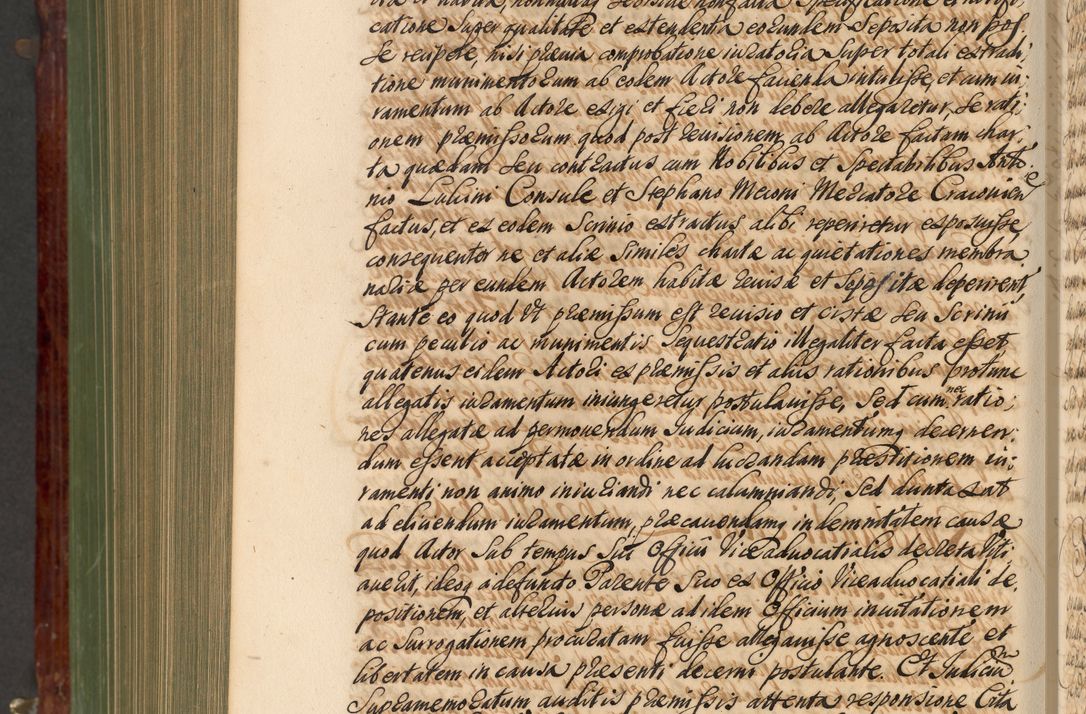 catione super qualitate et extendentia eorundem seposita non pos
se recipere, nisi prævia comprobatione iuratoria super totali extradi
tione munimentorum ab eodem Actore facienda intulisse, et cum iu:
ramentum ab Actore exigi et fieri non debere allegaretur, se rati:
onem præmissorum quod post revisionem ab Actore factam char
ta quædam seu contractus cum Nobilibus et Spectabilibus Anto
nio Lukini Consule et Stephano Meconi Mercatore Cracovien
factus, et ex eodem Scrinio extractus, alibi reperiretur exposuisse,
consequenter ne et aliæ similes chartæ ac quietationes membra
naciæ per eundem Actorem habitæ revisæ et sepositæ deperirent
stante eo quod ut præmissum est revisio et cistæ seu Scrinii
cum peculio ac munimentis sequestratio illegaliter facta esset
quatenus eidem Actori ex præmissis et aliis rationibus protunc
allegatis iuramentum iniungeretur postulavisse, Sed cum nec ratio;
nes allegatæ ad permovendum Iudicium, iuramentumq decernen:
dum essent acceptatæ in ordine ad lucrandam præstitionem iu:
ramenti non animo iniuriandi nec calumniandi, sed duntaxat
ad eliciendum iuramentum, præcavendamq indemnitatem causæ
quod Actor sub tempus sui Officii Viceadvocatialis decreta viti
averit, ideoq a defuncto Parente suo ex Officio Viceadvocatiali de
positionem, et alterius personæ ad idem Officium invitationem
ac surrogationem procuratam fuisse allegavisse agnoscente et
libertatem in causa præsenti decerni postulante. Et Iudicium
Supramemoratum auditis præmissis attenta responsione Cita